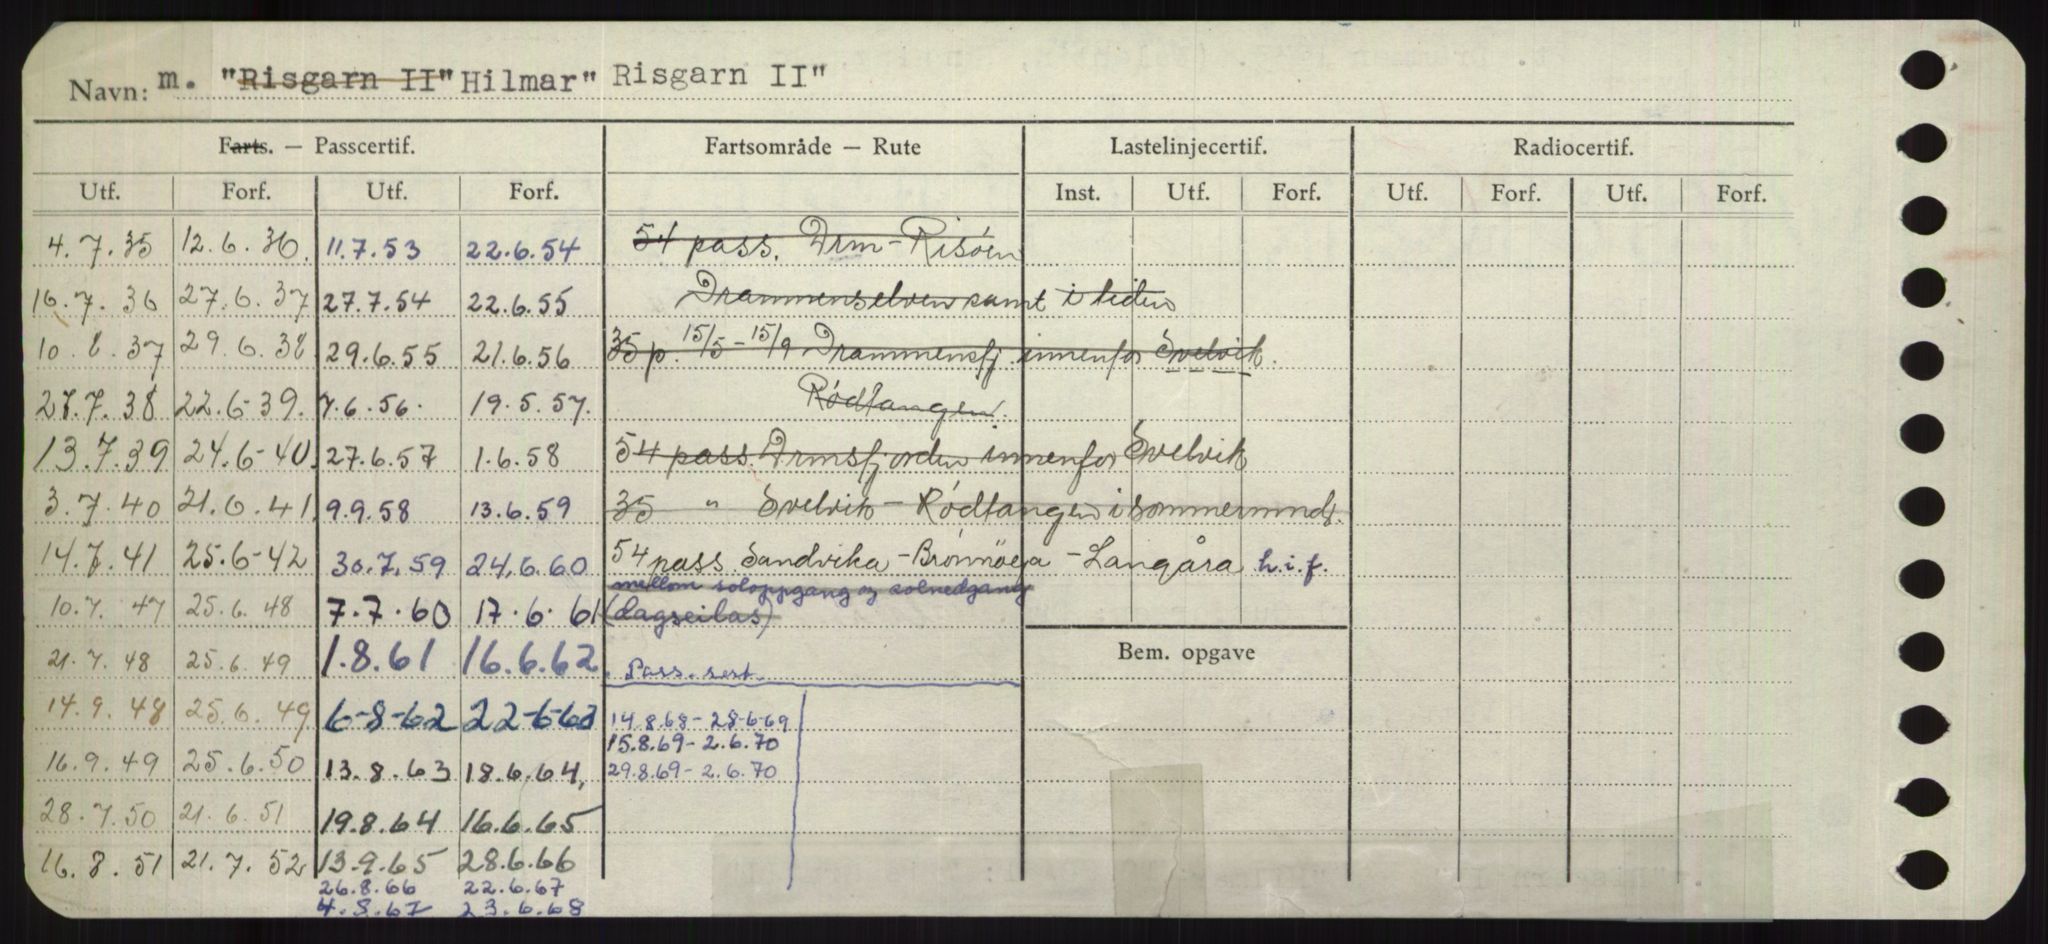 Navn: m. "Risgarn II" Hilmar" Risgarn II"
Farts. — Passcertif. Fartsområde — Rute Lastelinjecertif. Radiocertif.
Utf. Forf. Utf. Forf. Inst. Utf. Forf. Utf. Forf. Utf. Forf.
4.7.35 12.6.36. 11.7.53 22.6.54 54 pass. Drm - Risöen
16.7.36 27.6.37 27.7.54 22.6.55 Drammenselven samt i leden
10.8.37 29.6.38. 29.6.55 21.6.56 35 p. 15/5 - 15/9 Drammensfj. innenfor Svelvik.
Rødtangen.
27.7.38 22.6-39. 7.6.56. 19.5.57.
13.7.39 24.6-40. 27.6.57 1.6.58 54 pass. Drmsfjorden innenfor Svelvik
3.7.40 21.6.41. 9.9.58 13.6.59 35 " Svelvik - Rødtangen i sommermnd.
14.7.41 25.6-42 30.7.59 24.6.60 54 pass. Sandvika - Brönnöya - Langåra h.i.f.
mellom soloppgang og solnedgang
10.7.47 25.6.48 7.7.60 17.6.61 (dagseilas)
21.7.48 25.6.49 1.8.61 16.6.62 Pass. sert. Bem. opgave
14.9.48 25.6.49 6-8-62 22-6-63 14.8.68 - 28-6-69
15.8.69 - 2.6.70
16.9.49 25.6.50 13.8.63 18.6.64, 29.8.69 - 2.6.70
28.7.50 21.6.51 19.8.64 16.6.65
16.8.51 21.7.52 13.9.65 28.6.66
26.8.66 22.6.67
4.8.67 23.6.68